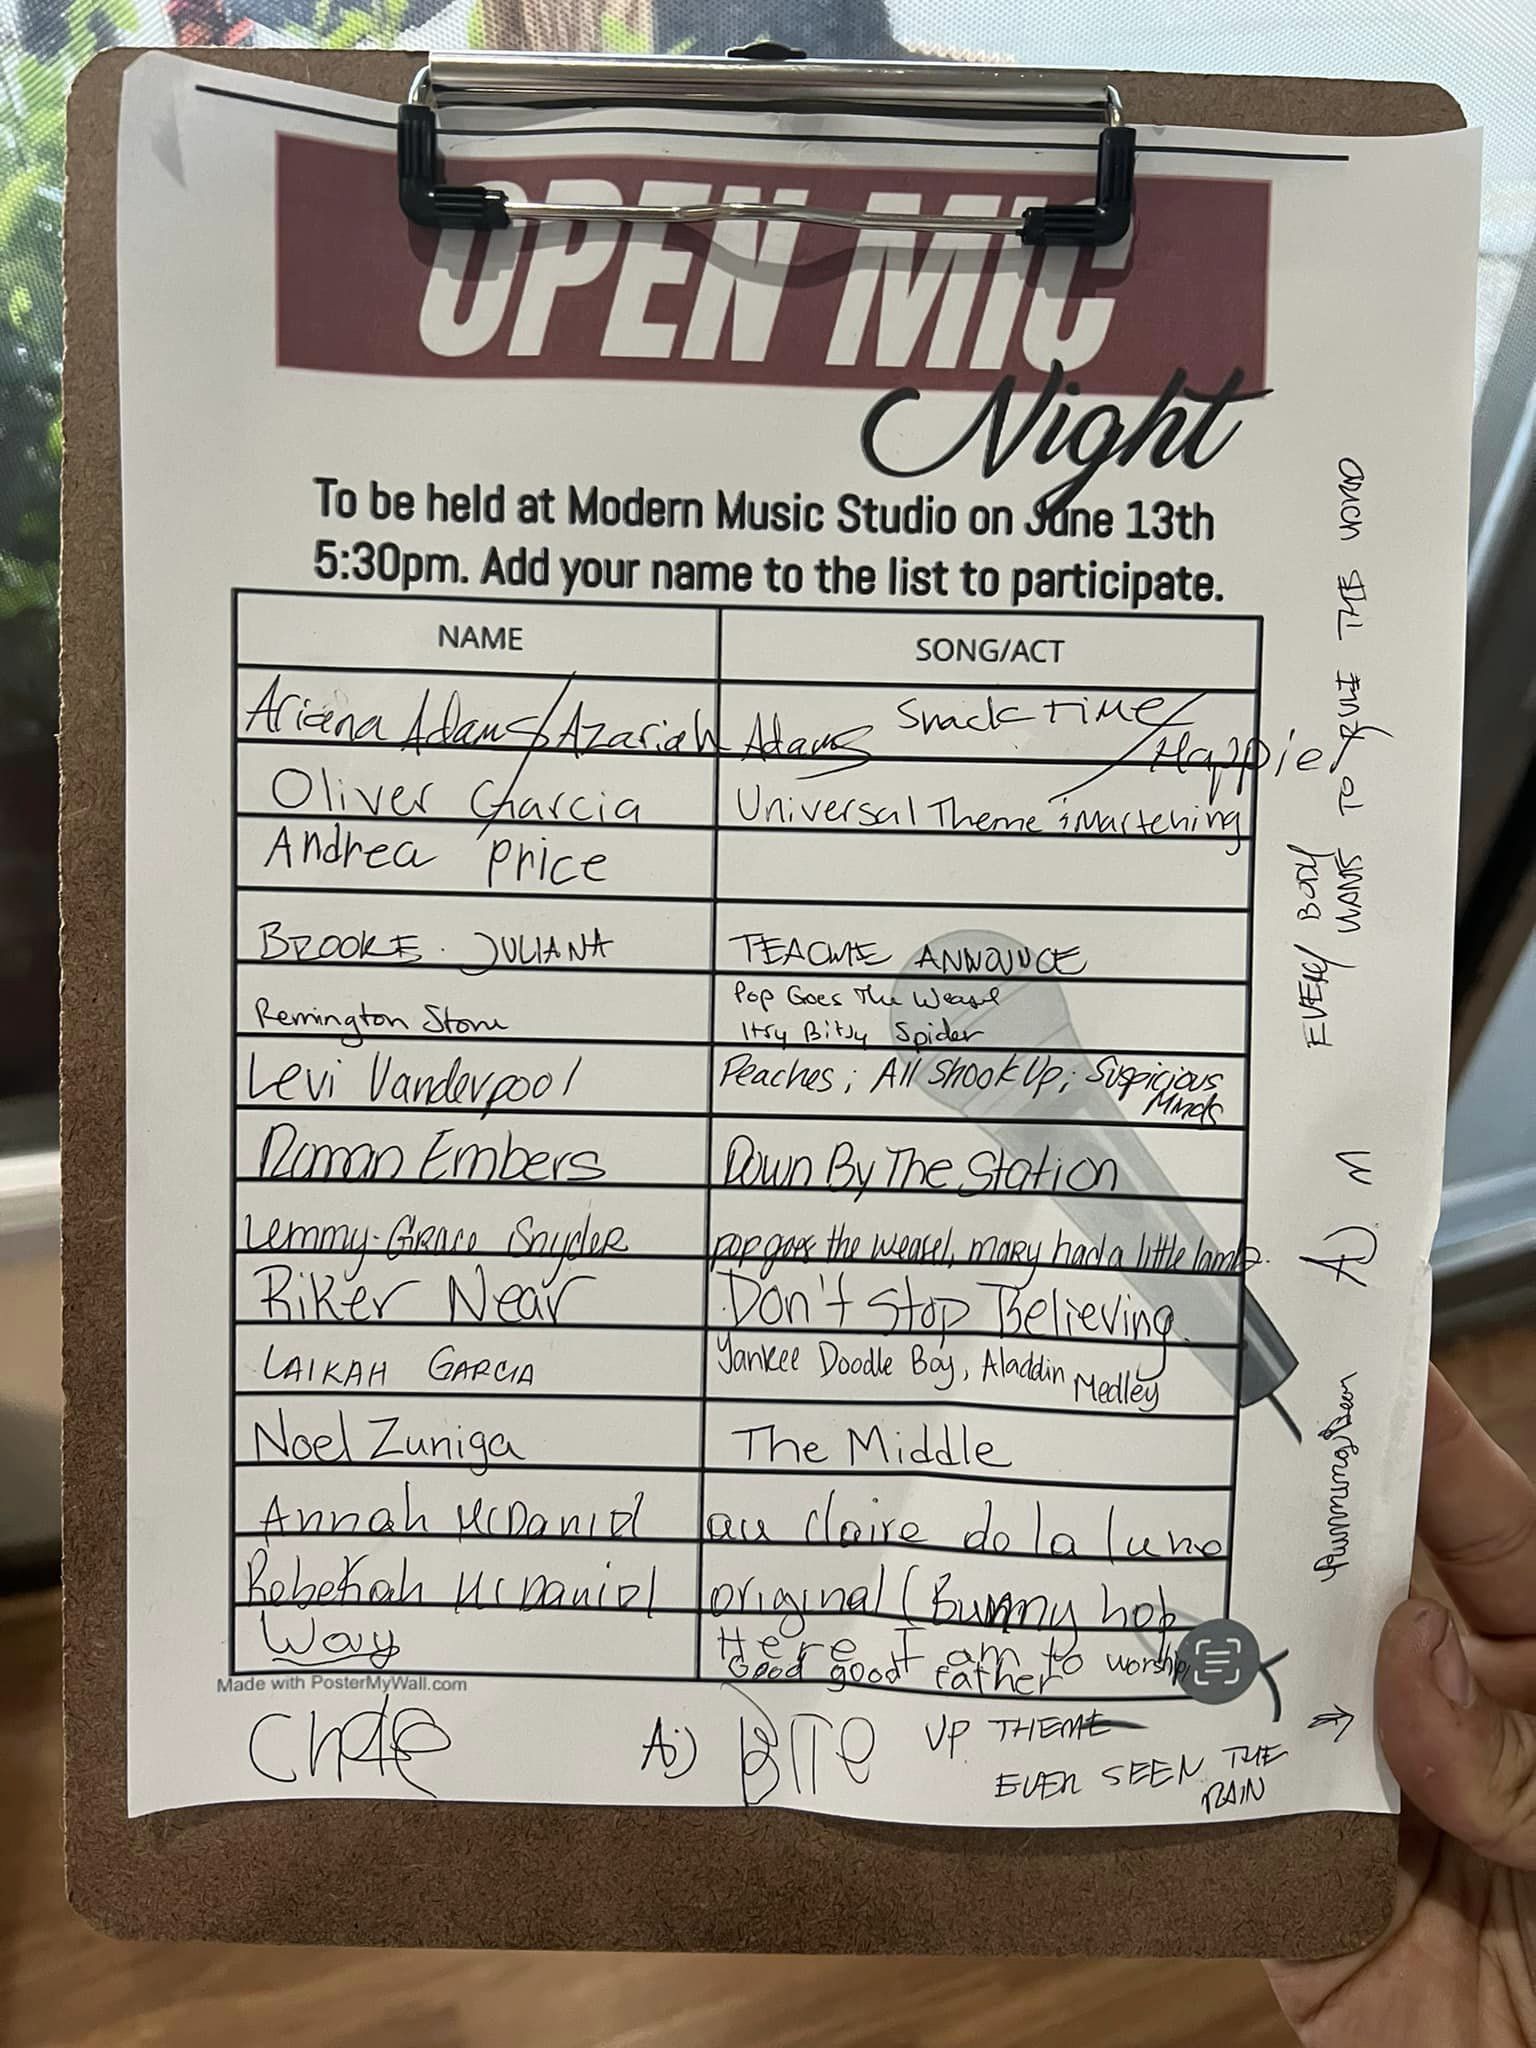 OPEN MIC
Night
To be held at Modern Music Studio on June 13th
5:30pm. Add your name to the list to participate.
NAME SONG/ACT
Ariana Adams/Azariah Adams Snack Time/
Happie
Oliver Garcia Universal Theme
Andrea Price
BROOKE JULIANA ANNOUNCE
Remington Stone Pop Goes The Weasel
Itsy Bitsy Spider
Levi Vanderpool Peaches; All Shook Up; Suspicious
Minds
Roman Embers Down By The Station
Lemmy-Grace Snyder pop goes the weasel, mary had a little lamb.
Riker Near Don't Stop Believing
LAIKAH GARCIA Yankee Doodle Boy, Aladdin
Medley
Noel Zuniga The Middle
Annah McDaniel au claire de la lune
Rebekah McDaniel original (Bunny hop
Way Here I am to worship,
Good good father
Made with PosterMyWall.com
AJ UP THEME
EVER SEEN THE
RAIN
EVERY BODY
WANTS TO RULE THE WORLD
AJ M